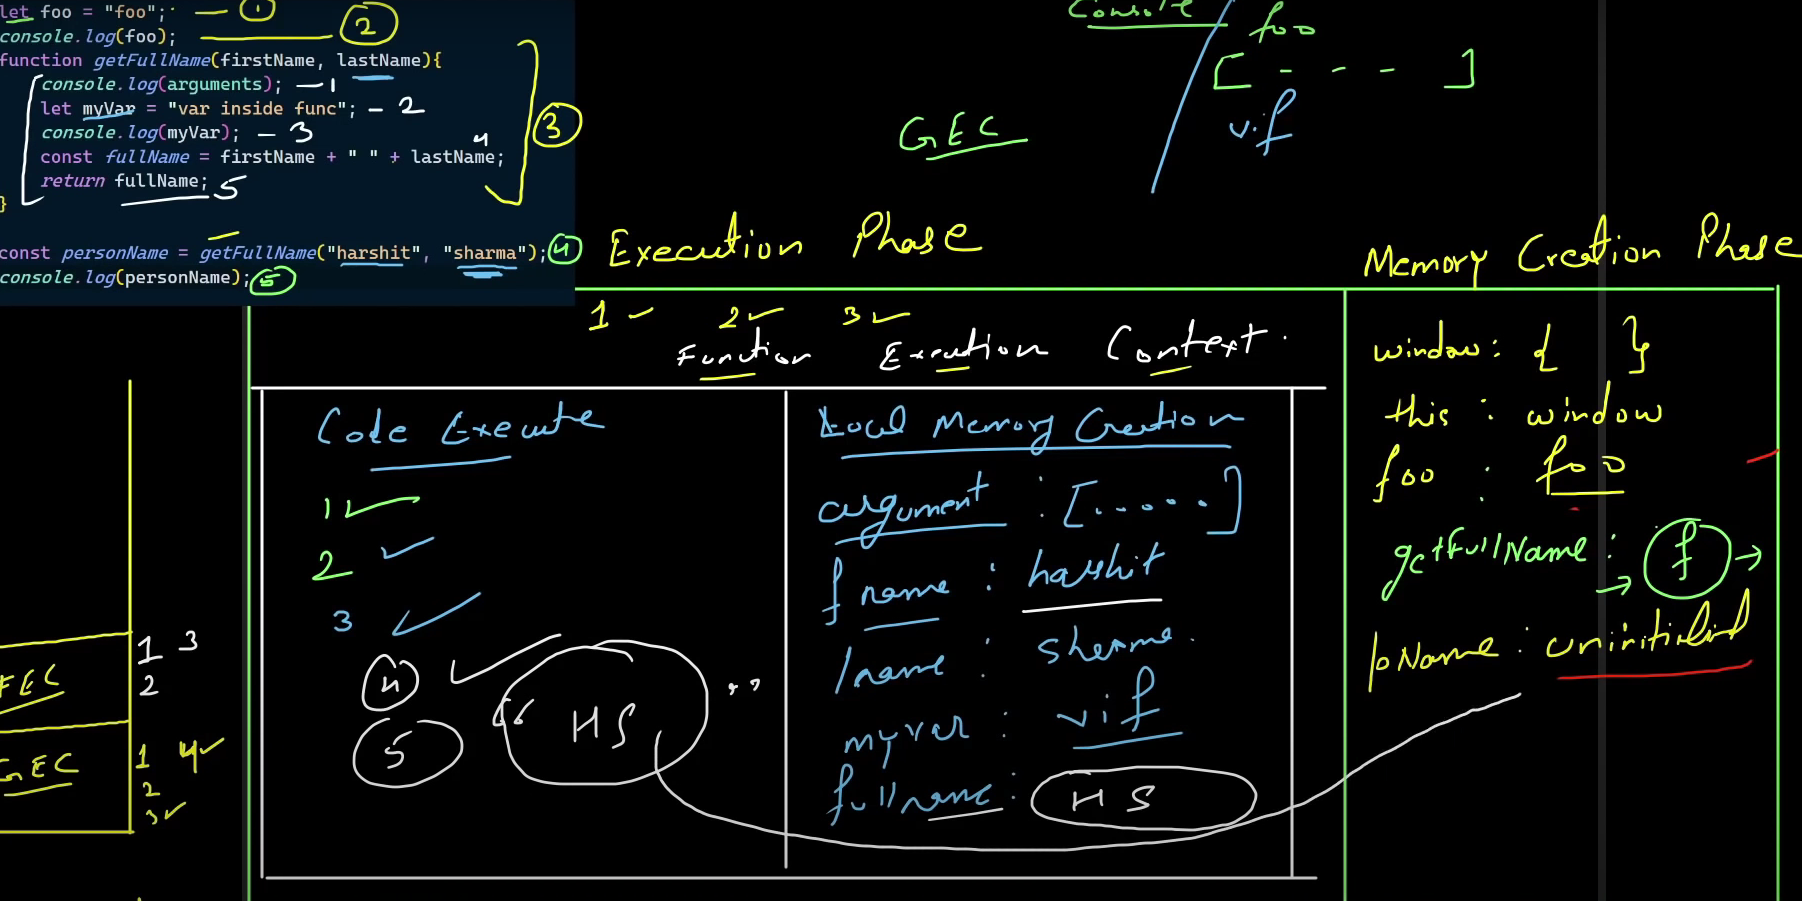 let foo = "foo"; 1
console.log(foo); 2
function getFullName(firstName, lastName){
console.log(arguments); 1
let myVar = "var inside func"; 2
console.log(myVar); 3
const fullName = firstName + " " + lastName; 4
return fullName; 5
}
3
const personName = getFullName("harshit", "sharma"); 4
console.log(personName); 5
Console
foo
[ - - - ]
v.if
GEC
Execution Phase
Memory Creation Phase
1 2 3
Function Execution Context.
Code Execute
1
2
3
4
5
"HS"
Local Memory Creation
argument : [......]
fname : harshit
lname : sharma.
myvar : vif
fullname : H S
window : { }
this : window
foo : foo
getFullName : f →
pName :
FEC
1 3
2
GEC
1 4
2
3